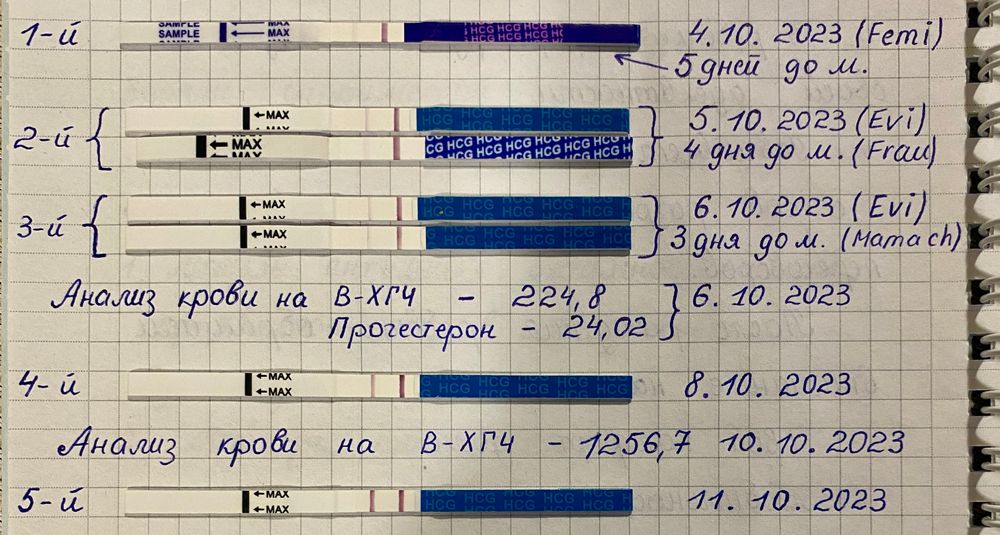 1-й SAMPLE SAMPLE SAMPLE MAX MAX MAX HCG HCG HCG HCG 4.10.2023 (Femi)
5 дней до м.
2-й MAX MAX HCG HCG HCG HCG HCG 5.10.2023 (Evi)
MAX MAX MAX CG HCG HCG HCG HCG HCG 4 дня до м. (Frau)
3-й MAX MAX HCG HCG HCG HCG 6.10.2023 (Evi)
MAX MAX HCG HCG HCG HCG 3 дня до м. (Mamach)
Анализ крови на В-ХГЧ - 224,8 6.10.2023
Прогестерон - 24,02
4-й MAX MAX HCG HCG HCG HCG 8.10.2023
Анализ крови на В-ХГЧ - 1256,7 10.10.2023
5-й MAX MAX HCG HCG HCG HCG 11.10.2023